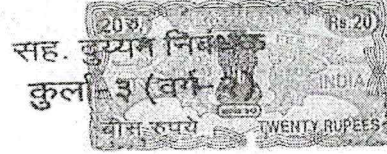 20 रु. Rs.20
सह. दुय्यम निबंधक
कुर्ला-३ (वर्ग-
INDIA
बीस रुपये TWENTY RUPEES